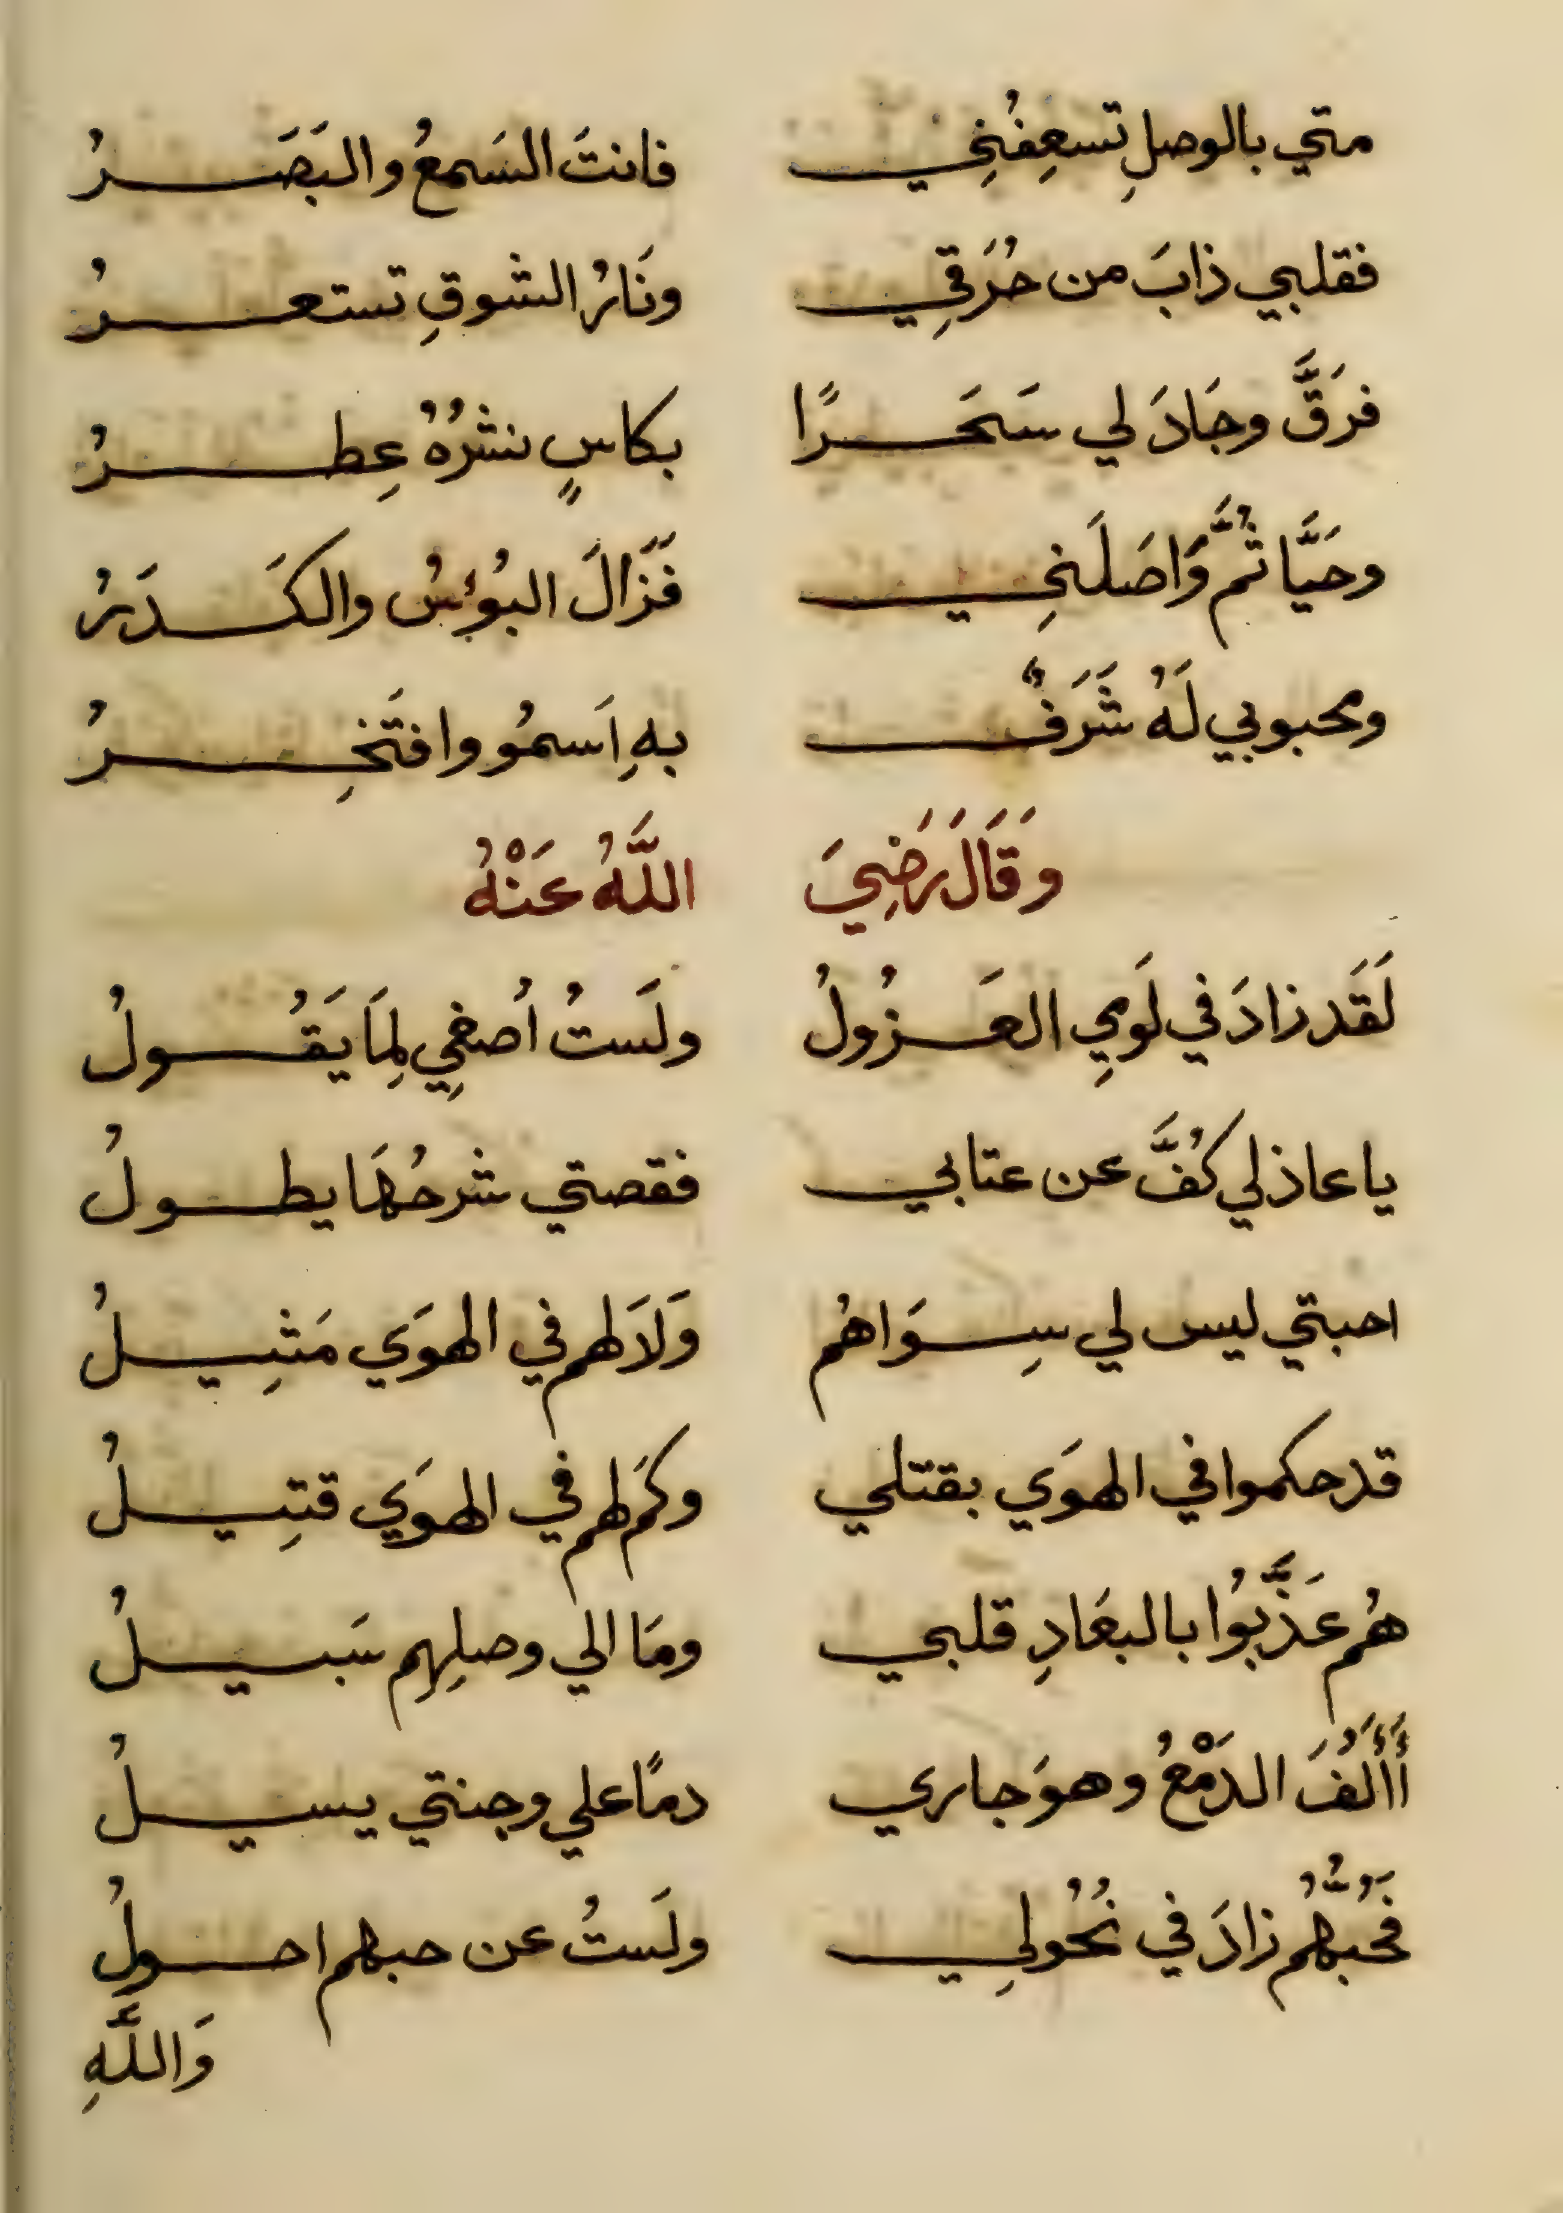 متي بالوصلِ تسعِفُنِي فانتَ السَمعُ والبَصَرُ
فقلبي ذابَ من حُرَقِي ونَارُ الشوقِ تستعرُ
فرَقَّ وجَادَ لي سَحَرًا بكاسٍ نشرُهُ عِطرُ
وحَيَّا ثُمَّ وَاصَلَنِي فَزَالَ البُؤسُ والكَدَرُ
ومحبوبي لَهُ شَرَفٌ بهِ اَسمُو وافتَخِرُ
وَقَالَ رَضِيَ اللَّهُ عَنْهُ
لَقَد زادَ في لَومِي العَزُولُ ولَستُ أُصغِي لِمَا يَقُولُ
يا عاذلي كُفَّ عن عتابي فقصتي شرحُهَا يطولُ
احبتي ليس لي سِوَاهُم وَلَا لهم في الهوَي مَثِيلُ
قد حكموا في الهوَي بقتلي وكَم لهم في الهوَي قتِيلُ
هُم عَذَّبُوا بالبعَادِ قلبي ومَا الي وصلِهم سَبيلُ
أَأَلَفُ الدَمْعُ وهوَ جاري دمًا علي وجنتي يسيلُ
فَحُبُّهُم زادَ في نُحُولِي ولَستُ عن حبهم احولُ
وَاللَّهِ